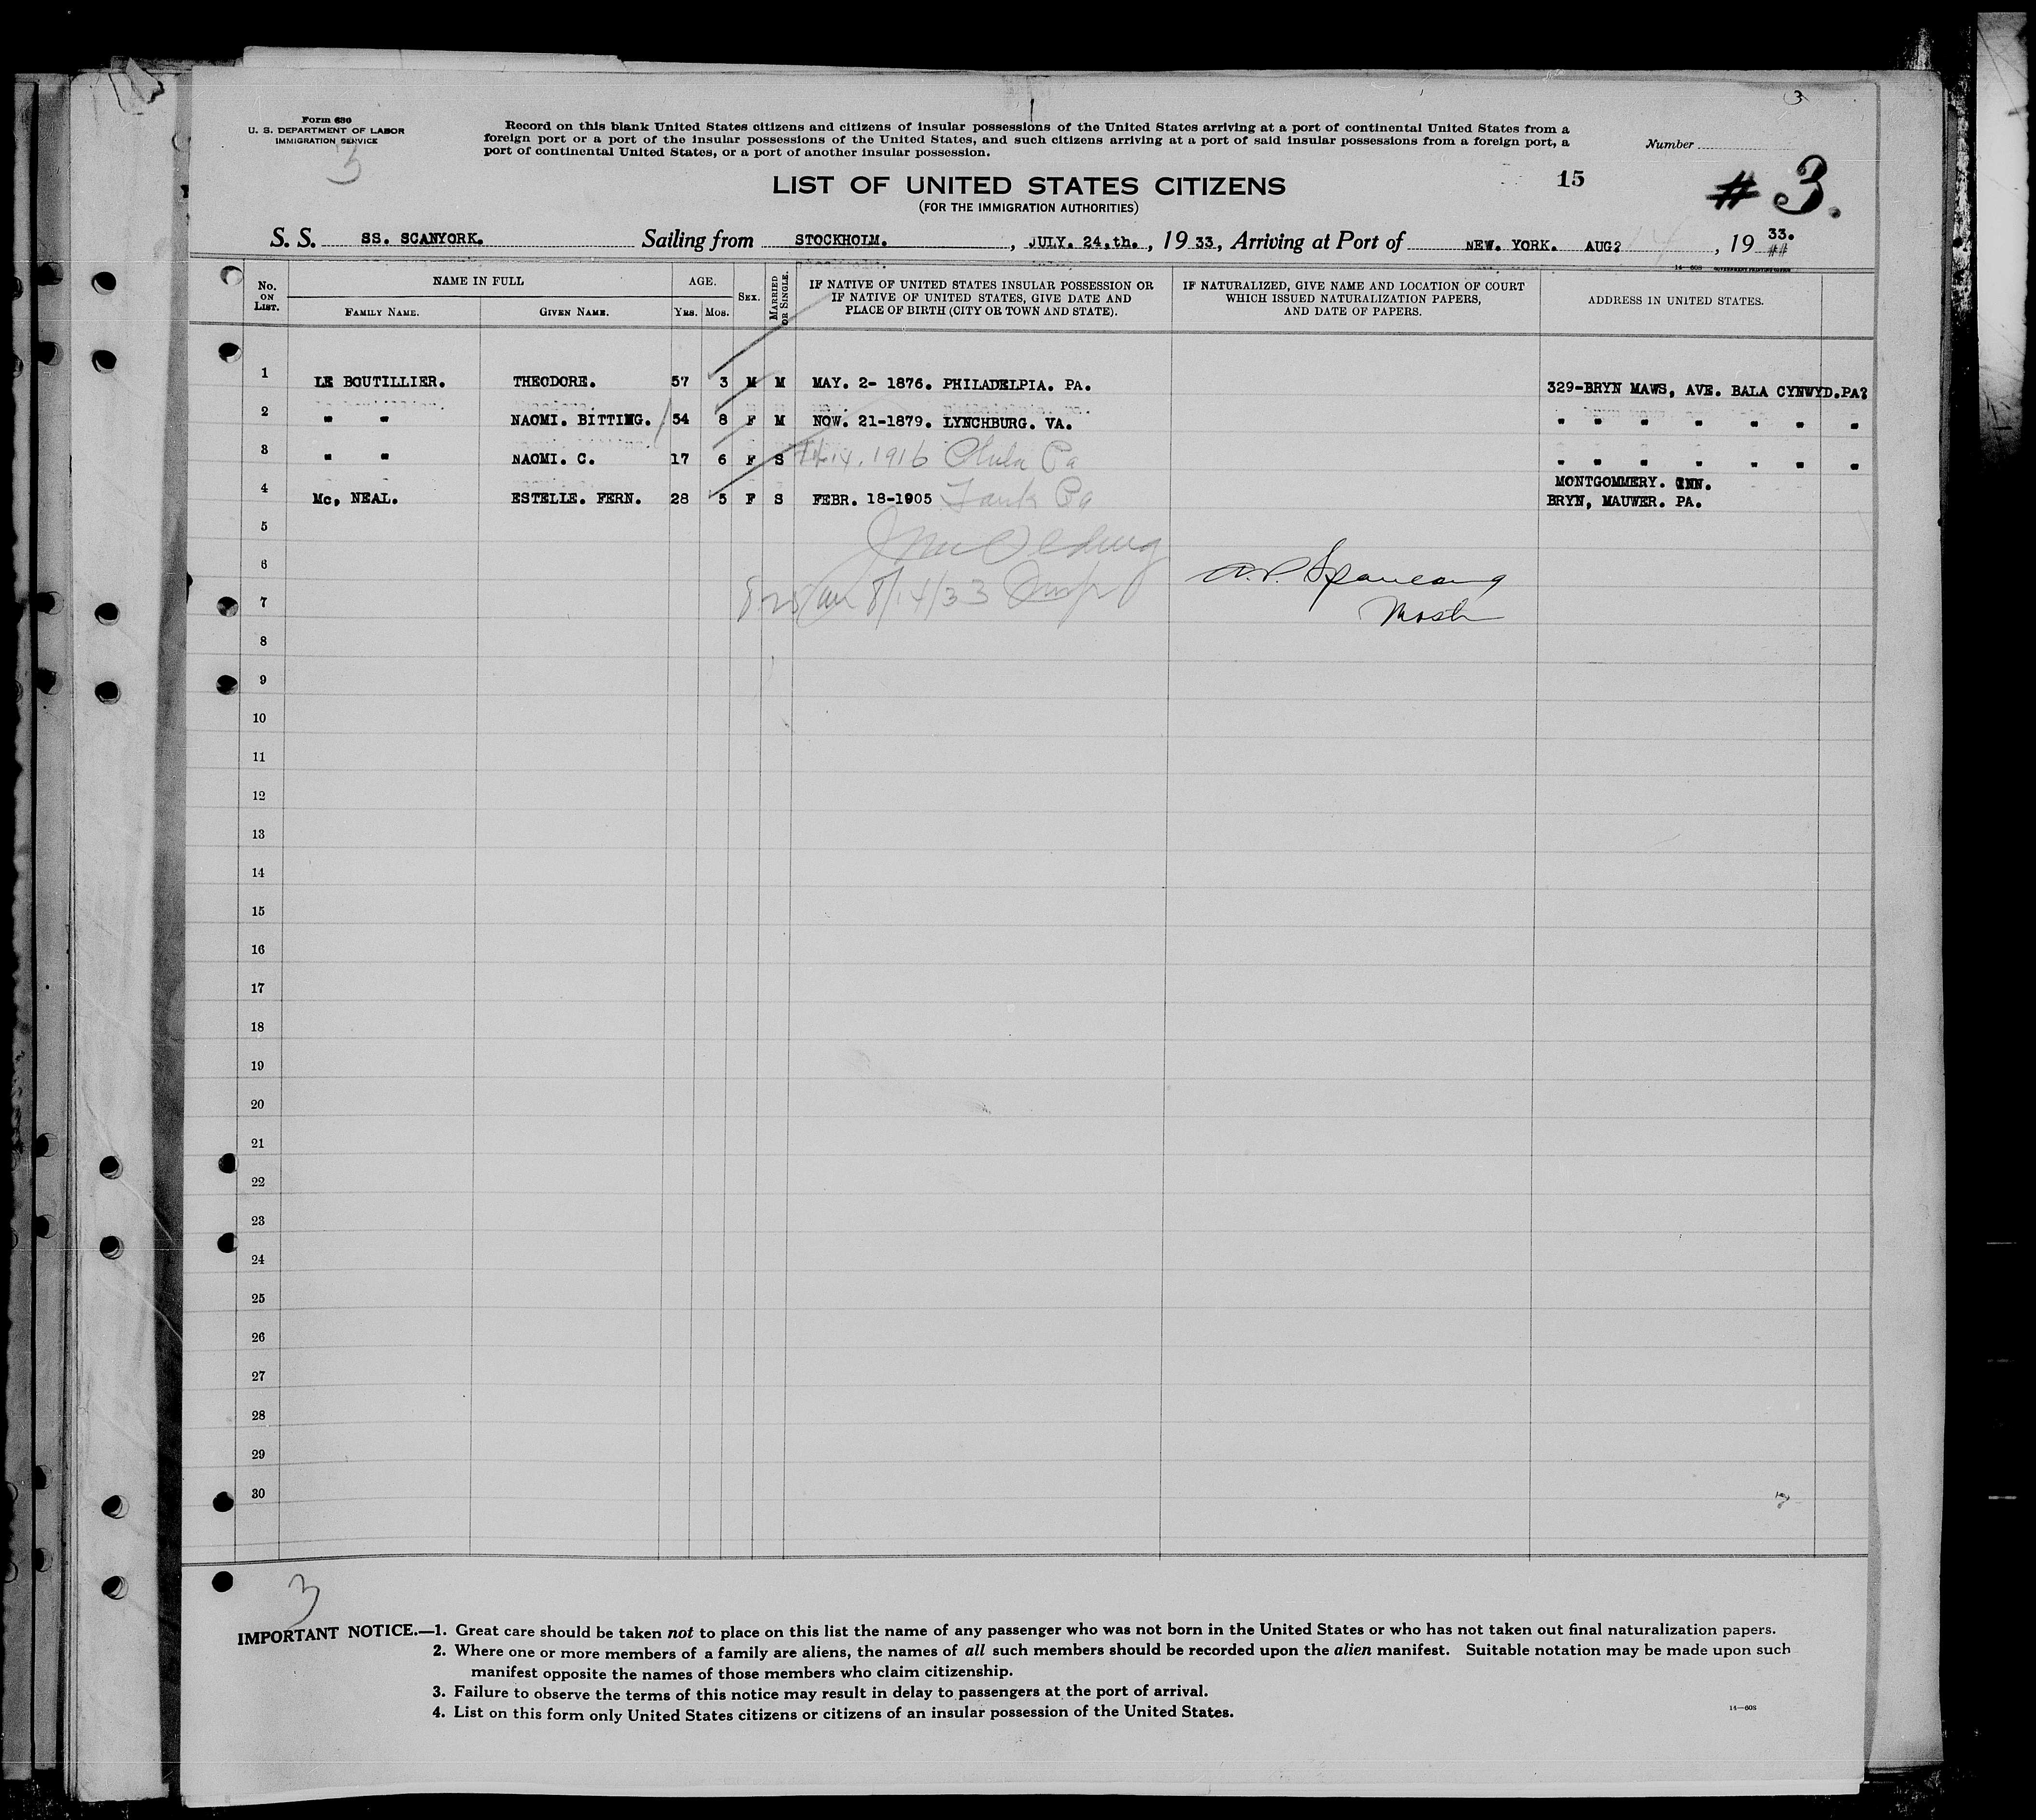 3
Form 630
U. S. DEPARTMENT OF LABOR
IMMIGRATION SERVICE
3
Record on this blank United States citizens and citizens of insular possessions of the United States arriving at a port of continental United States from a
foreign port or a port of the insular possessions of the United States, and such citizens arriving at a port of said insular possessions from a foreign port, a
port of continental United States, or a port of another insular possession.
Number
LIST OF UNITED STATES CITIZENS
15
# 3.
(FOR THE IMMIGRATION AUTHORITIES)
S. S. SS. SCANYORK. Sailing from STOCKHOLM. , JULY. 24,th. , 19 33, Arriving at Port of NEW. YORK. AUG? 14 , 19 33.
##
14—608 GOVERNMENT PRINTING OFFICE
No. ON LIST. NAME IN FULL AGE. SEX. MARRIED OR SINGLE. IF NATIVE OF UNITED STATES INSULAR POSSESSION OR IF NATIVE OF UNITED STATES, GIVE DATE AND PLACE OF BIRTH (CITY OR TOWN AND STATE). IF NATURALIZED, GIVE NAME AND LOCATION OF COURT WHICH ISSUED NATURALIZATION PAPERS, AND DATE OF PAPERS. ADDRESS IN UNITED STATES.
FAMILY NAME. GIVEN NAME. YRS. MOS.
1 LE BOUTILLIER. THEODORE. 57 3 M M MAY. 2- 1876. PHILADELPIA. PA. 329-BRYN MAWS, AVE. BALA CYNWYD.PA?
2 " " NAOMI. BITTING. 54 8 F M NOW. 21-1879. LYNCHBURG. VA. " " " " " " "
3 " " NAOMI. C. 17 6 F S 14, 1916 Phila Pa " " " " " " "
4 Mc, NEAL. ESTELLE. FERN. 28 5 F S FEBR. 18-1905 Pa MONTGOMMERY. INN.
BRYN, MAUWER. PA.
5
6
7 8/14/33 Insp
8
9
10
11
12
13
14
15
16
17
18
19
20
21
22
23
24
25
26
27
28
29
30
3
IMPORTANT NOTICE.—1. Great care should be taken not to place on this list the name of any passenger who was not born in the United States or who has not taken out final naturalization papers.
2. Where one or more members of a family are aliens, the names of all such members should be recorded upon the alien manifest. Suitable notation may be made upon such
manifest opposite the names of those members who claim citizenship.
3. Failure to observe the terms of this notice may result in delay to passengers at the port of arrival.
4. List on this form only United States citizens or citizens of an insular possession of the United States.
14—608